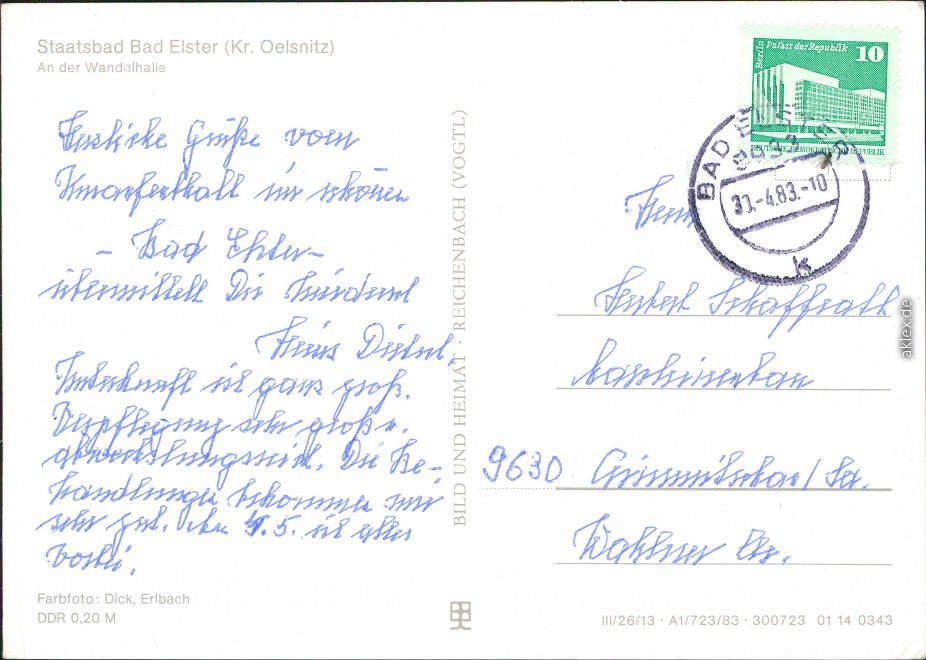 Staatsbad Bad Elster (Kr. Oelsnitz)
An der Wandelhalle
Herzliche Grüße vom
im schönen
– Bad Elster –
übermittelt Dir
Heinz
Unterkunft ist ganz groß.
Verpflegung sehr groß u.
abwechslungsreich. Die Be-
handlungen bekommen mir
sehr gut. Am 7.5. ist alles
vorbei.
Farbfoto: Dick, Erlbach
DDR 0,20 M
BILD UND HEIMAT · REICHENBACH (VOGTL)
Berlin Palast der Republik 10
DEUTSCHE DEMOKRATISCHE REPUBLIK
BAD ELSTER
9933
30.-4.83.-10
k
Herrn
Maschinenbau
9630 Crimmitschau/Sa.
Str.
III/26/13 · A1/723/83 · 300723 01 14 0343
aklex.de